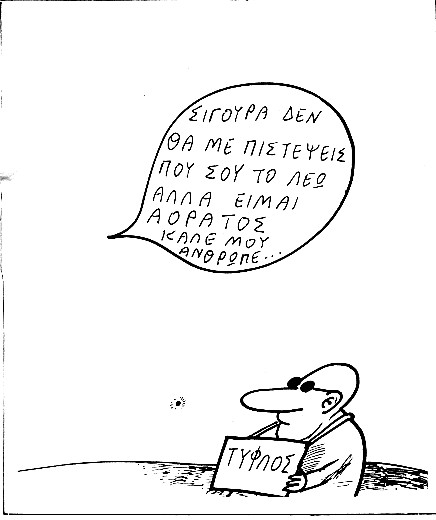 ΣΙΓΟΥΡΑ ΔΕΝ
ΘΑ ΜΕ ΠΙΣΤΕΨΕΙΣ
ΠΟΥ ΣΟΥ ΤΟ ΛΕΩ
ΑΛΛΑ ΕΙΜΑΙ
ΑΟΡΑΤΟΣ
ΚΑΛΕ ΜΟΥ
ΑΝΘΡΩΠΕ...
ΤΥΦΛΟΣ